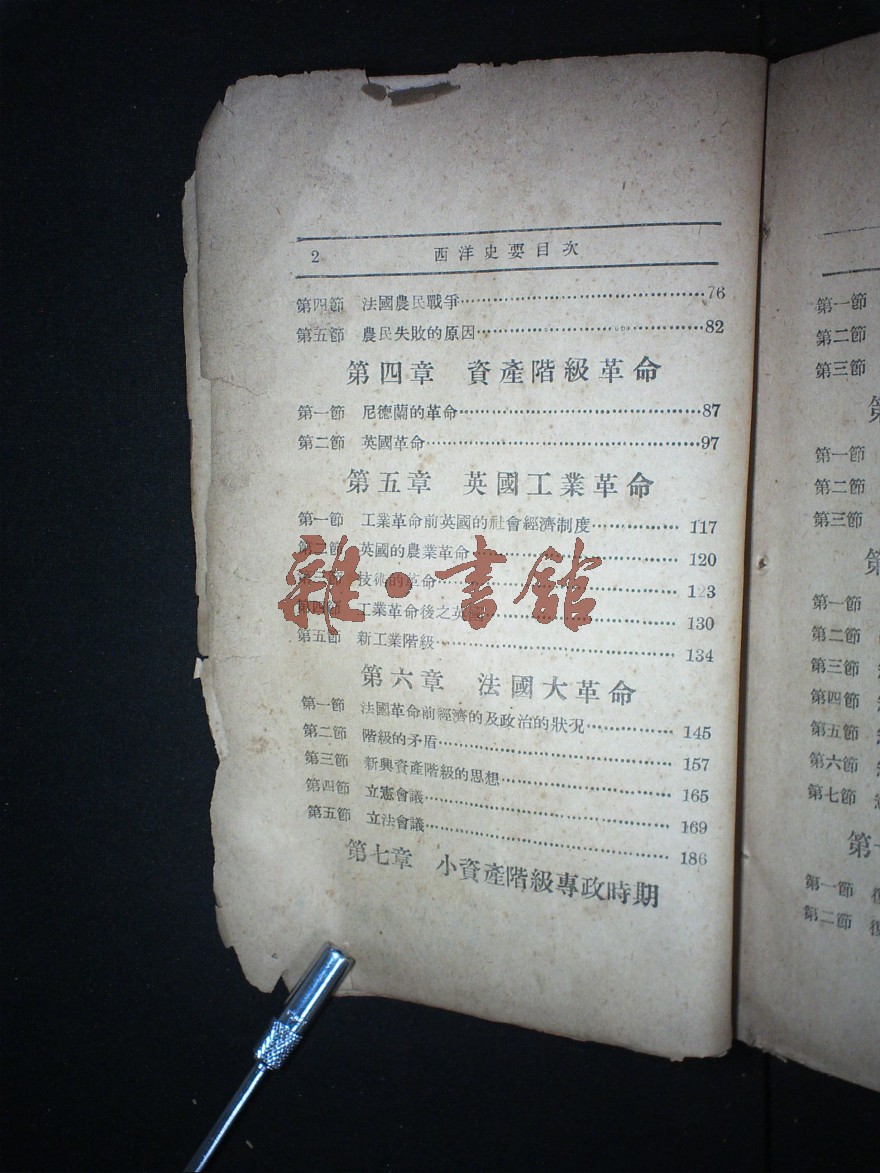 2 西洋史要目次
第四節 法國農民戰爭……76
第五節 農民失敗的原因……82
第四章 資產階級革命
第一節 尼德蘭的革命……87
第二節 英國革命……97
第五章 英國工業革命
第一節 工業革命前英國的社會經濟制度……117
第二節 英國的農業革命……120
第三節 技術的革命……123
第四節 工業革命後之英國……130
第五節 新工業階級……134
第六章 法國大革命
第一節 法國革命前經濟的及政治的狀况……145
第二節 階級的矛盾……157
第三節 新興資產階級的思想……165
第四節 立憲會議……169
第五節 立法會議……186
第七章 小資產階級專政時期
雜·書館
第一節
第二節
第三節
第一節
第二節
第三節
第一節
第二節
第三節
第四節
第五節
第六節
第七節
第一節
第二節